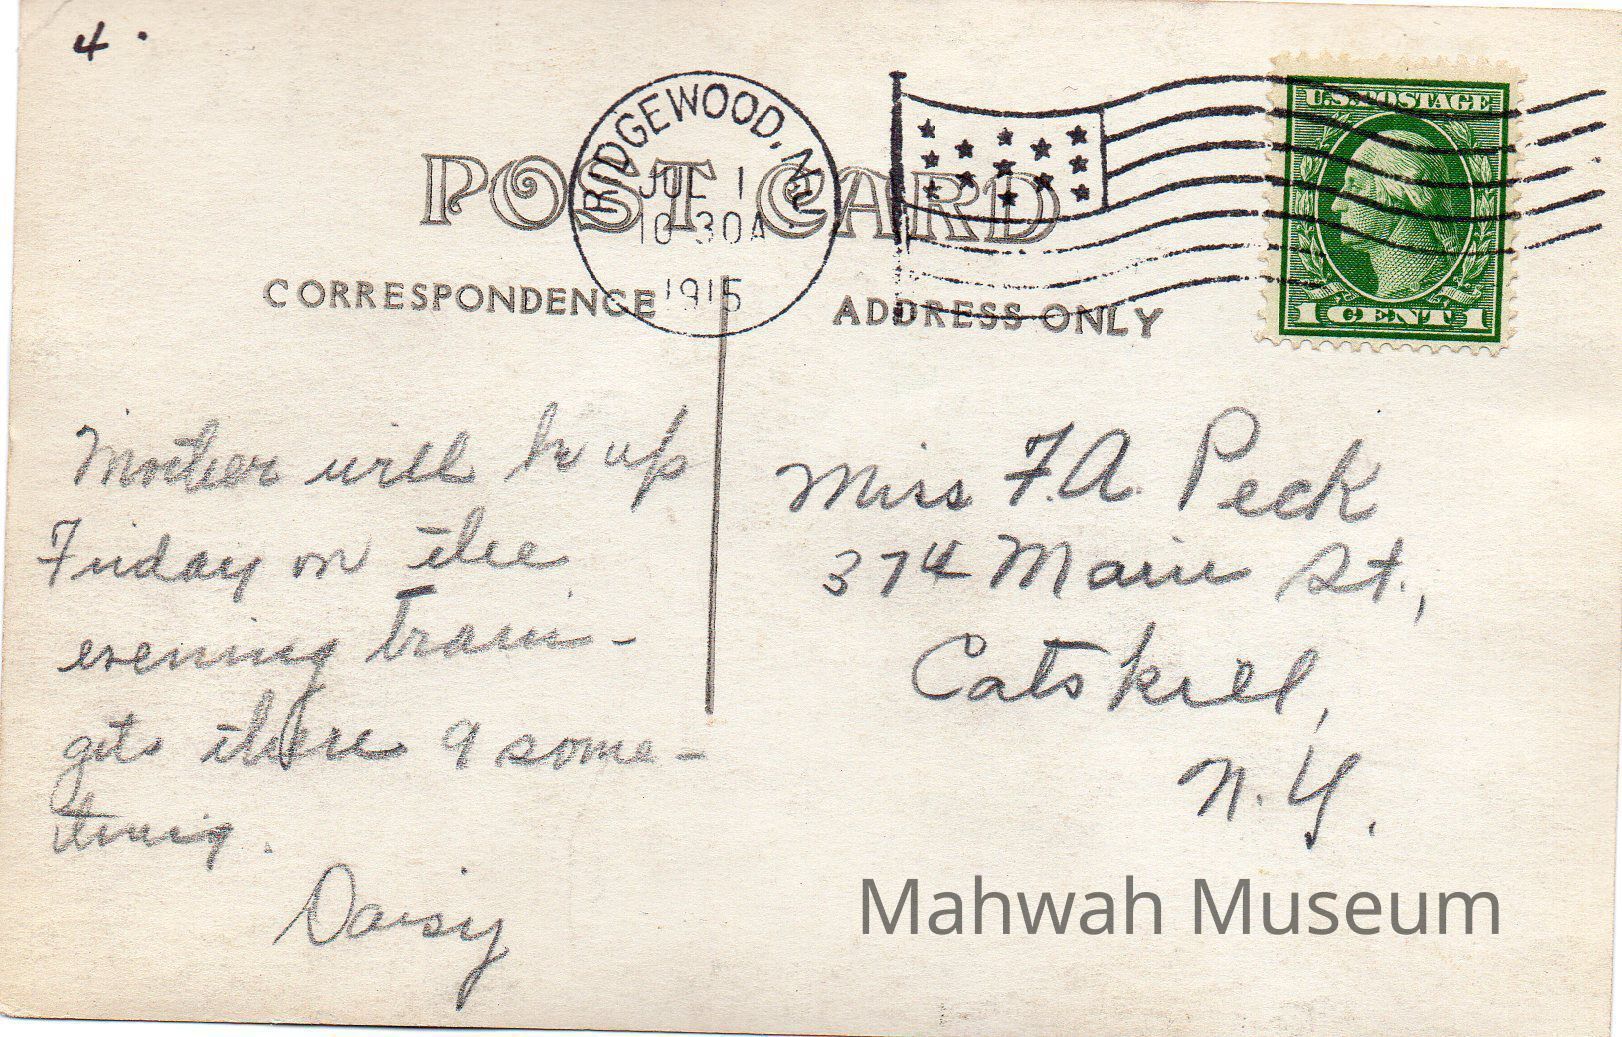 4.
RIDGEWOOD, N.J.
JUL 1
10 30A
1915
U.S. POSTAGE
1 CENT 1
POST CARD
CORRESPONDENCE
ADDRESS ONLY
Mother will be up
Friday on the
evening train -
gets there 9 some-
thing.
Daisy
Miss F.A. Peck
374 Main St.,
Catskill,
N.Y.
Mahwah Museum